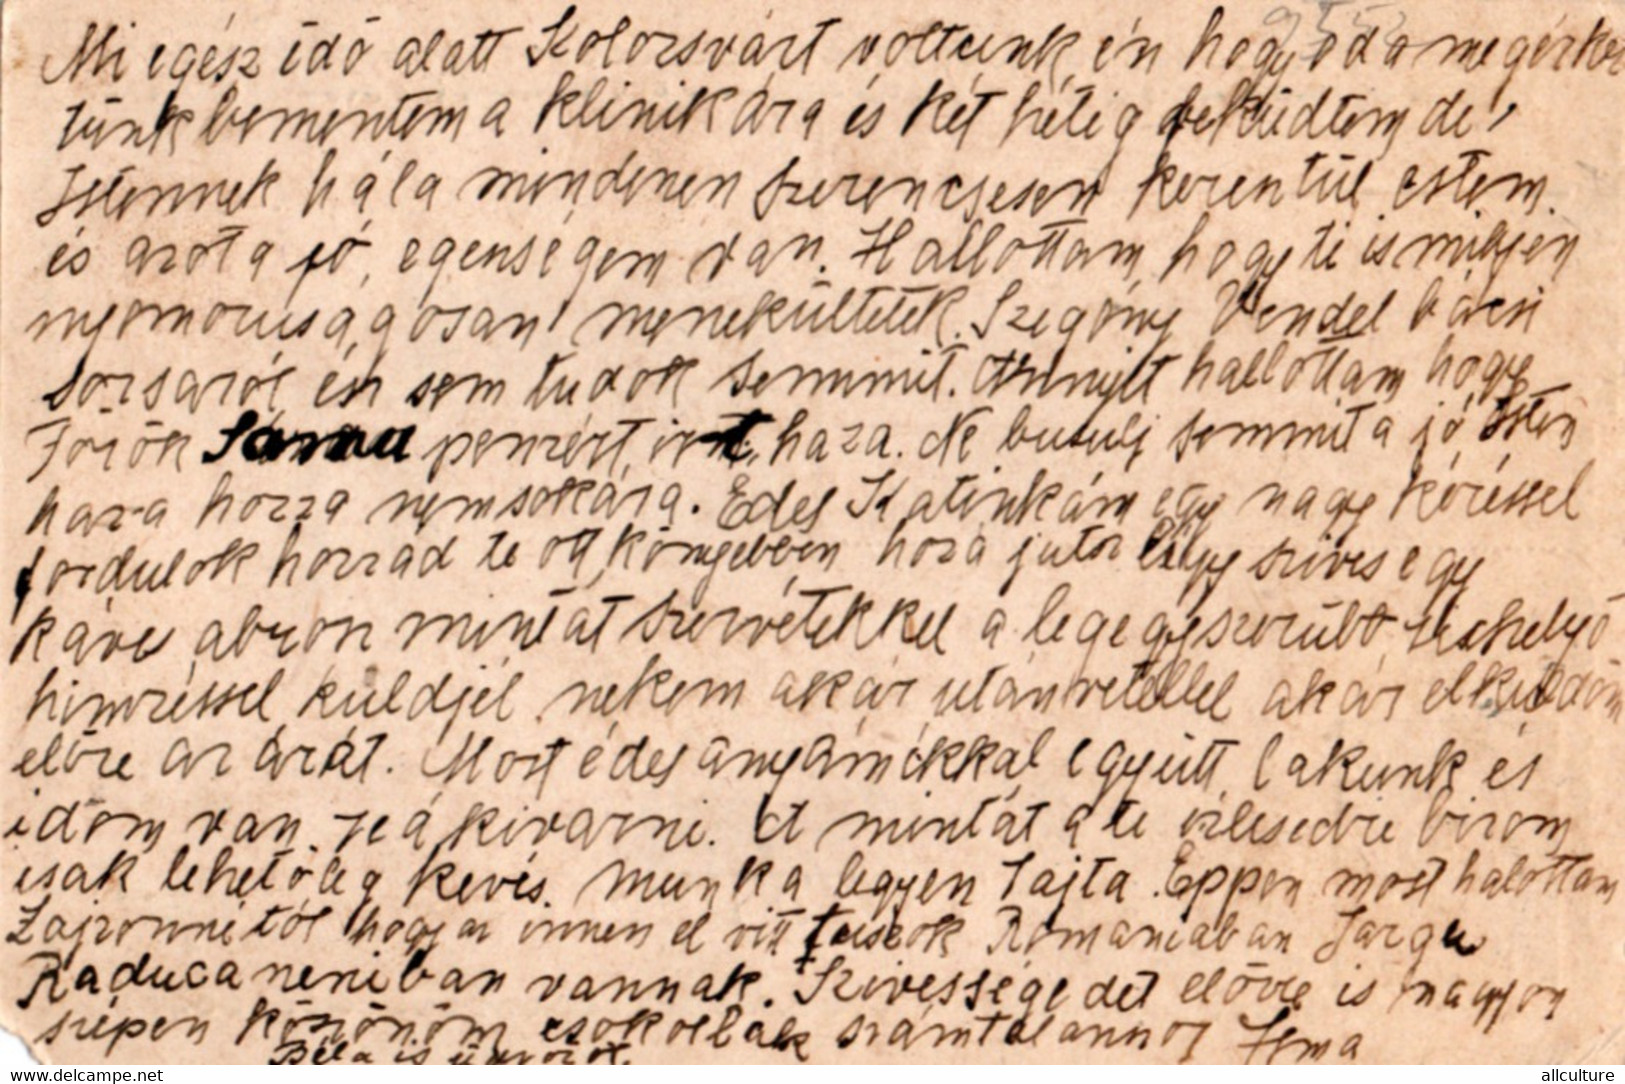 Mi egész idő alatt Kolozsvárt voltunk én hogy oda megérkez
tünk bementem a klinikára és két hétig feküdtem de
Istennek hála mindenen szerencsesen kerentül estem
és azota jó egenségem van. Hallottam hogy ti is milyen
nyomoruságosan menekültetek. Szegény Vendel bácsi
sorsaról én sem tudok semmit. Annyit hallottam hogy
Török penzért irt haza. Ne busulj semmit a jó Isten
haza hozza nemsokára. Edes Katinkám egy nagy kéréssel
fordulok hozzád te ott könyebben hozá jutsz légy szives egy
kávés abrosz mintát szervétekkel a legegyszerübb
himzéssel küldjél nekem akár utánvétellel akár elküldöm
előre az árát. Most édes anyámékkal együtt lakunk és
időm van reá kivarni. A mintát a te izlesedre bizom
csak lehetőleg kevés munka legyen rajta. Eppen most halottam
Zajzonnétól hogy az innen el vitt tuszok Romaniaban Targu
Raducaneniban vannak. Szivességedet előre is nagyon
szépen köszönöm csokollak számtalanszor Irma
Béla is üdvözöl.
allculture-delcampe.net
allculture